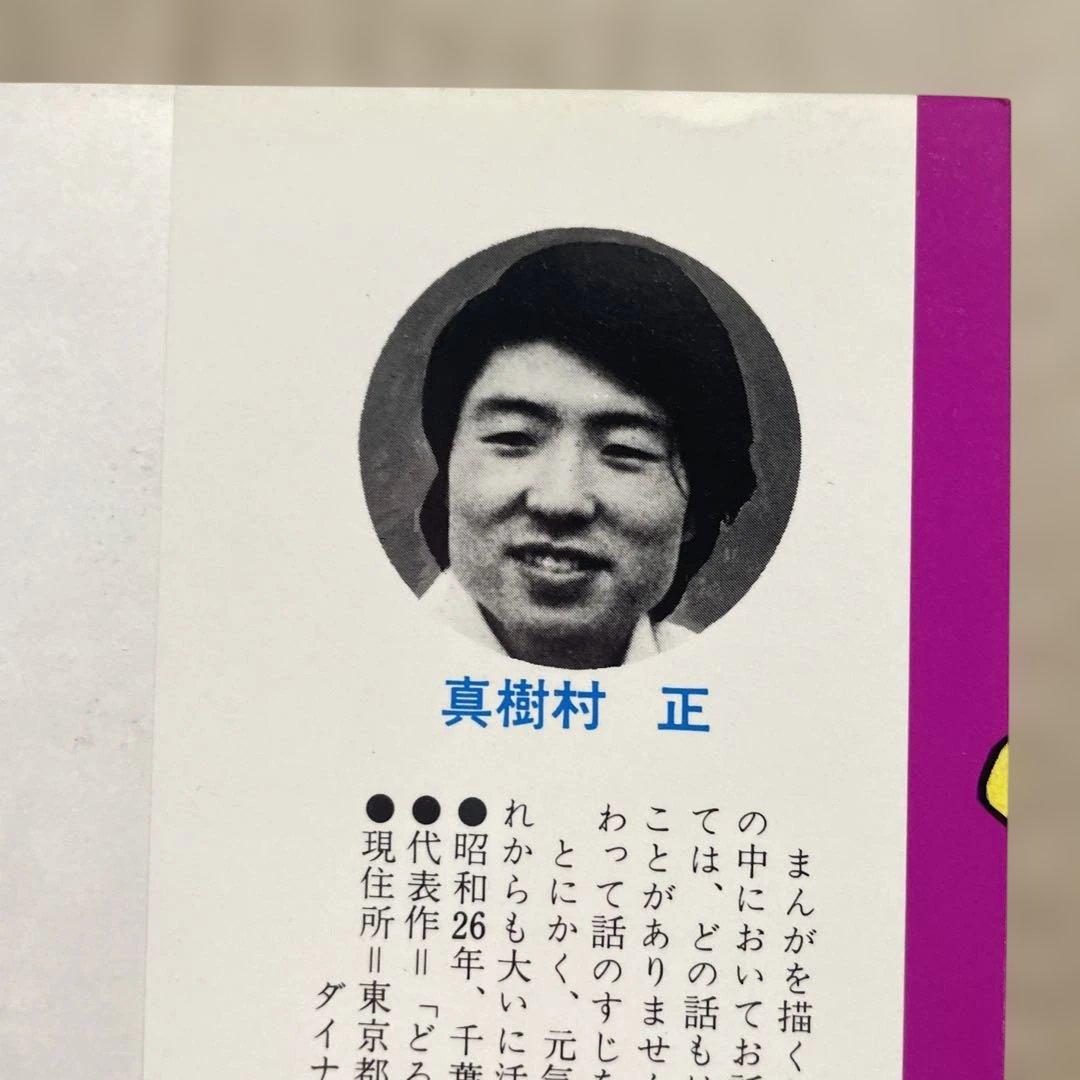 真樹村　正
まんがを描く
の中においてお話
ては、どの話も
ことがありません
わって話のすじ
とにかく、元気
れからも大いに活
●昭和26年、千葉
●代表作＝「どろ
●現住所＝東京都
ダイナ